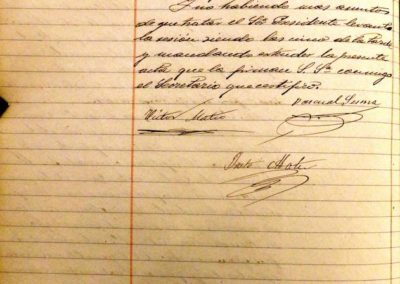 Y no habiendo mas asuntos
de que tratar el Sr. Presidente levantó
la sesión siendo las nueve de la Tarde
y mandando extender la presente
acta que la firman S. Sª conmigo
el Secretario que certifico.
Pascual
Victor Mateo